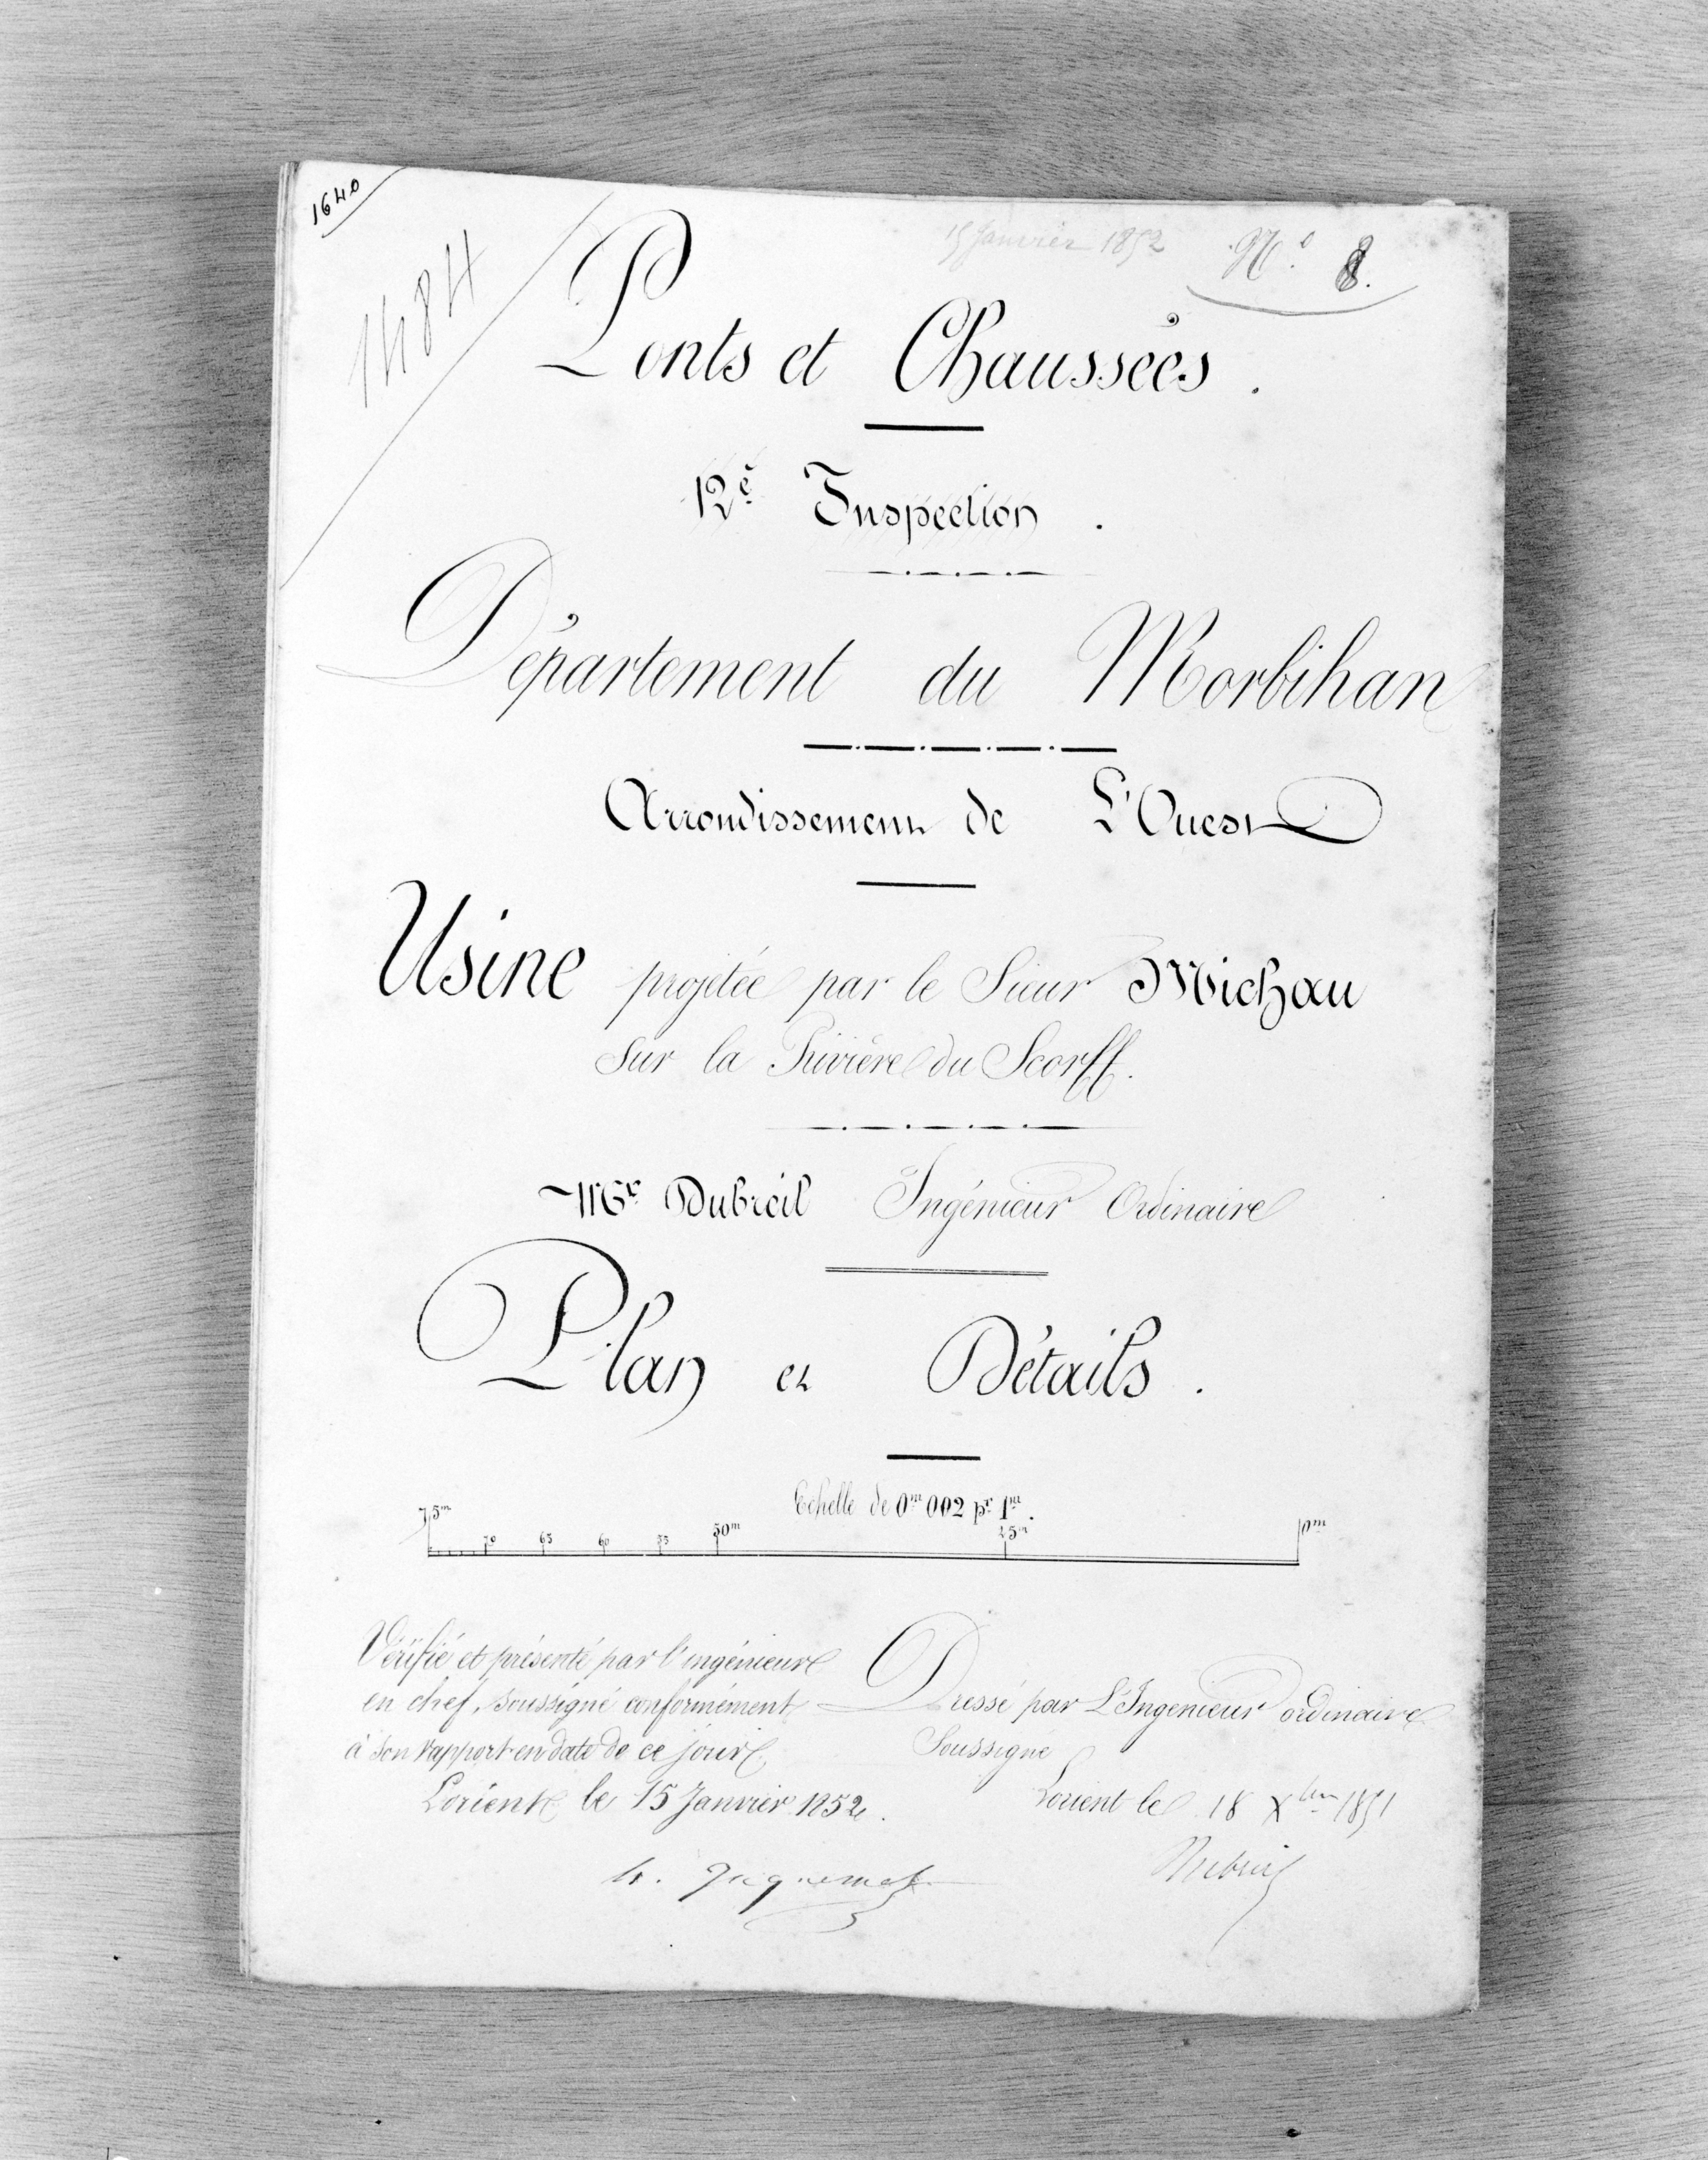 1640
1484
15 Janvier 1852
N.º 8.
Ponts et Chaussées.
12e Inspection.
Département du Morbihan
Arrondissement de L'Ouest
Usine projetée par le Sieur Michau
sur la Rivière du Scorff.
Mr. Dubreil Ingénieur Ordinaire
Plan et Détails.
Echelle de 0m 002 pr. 1m.
75m 70 65 60 55 50m 25m 0m
Vérifié et présenté par l'ingénieur
en chef, soussigné conformément
à son rapport en date de ce jour
Lorient le 15 Janvier 1852.
Dressé par L'Ingenieur ordinaire
Soussigné
Lorient le 18 Xbre 1851
Dubreil